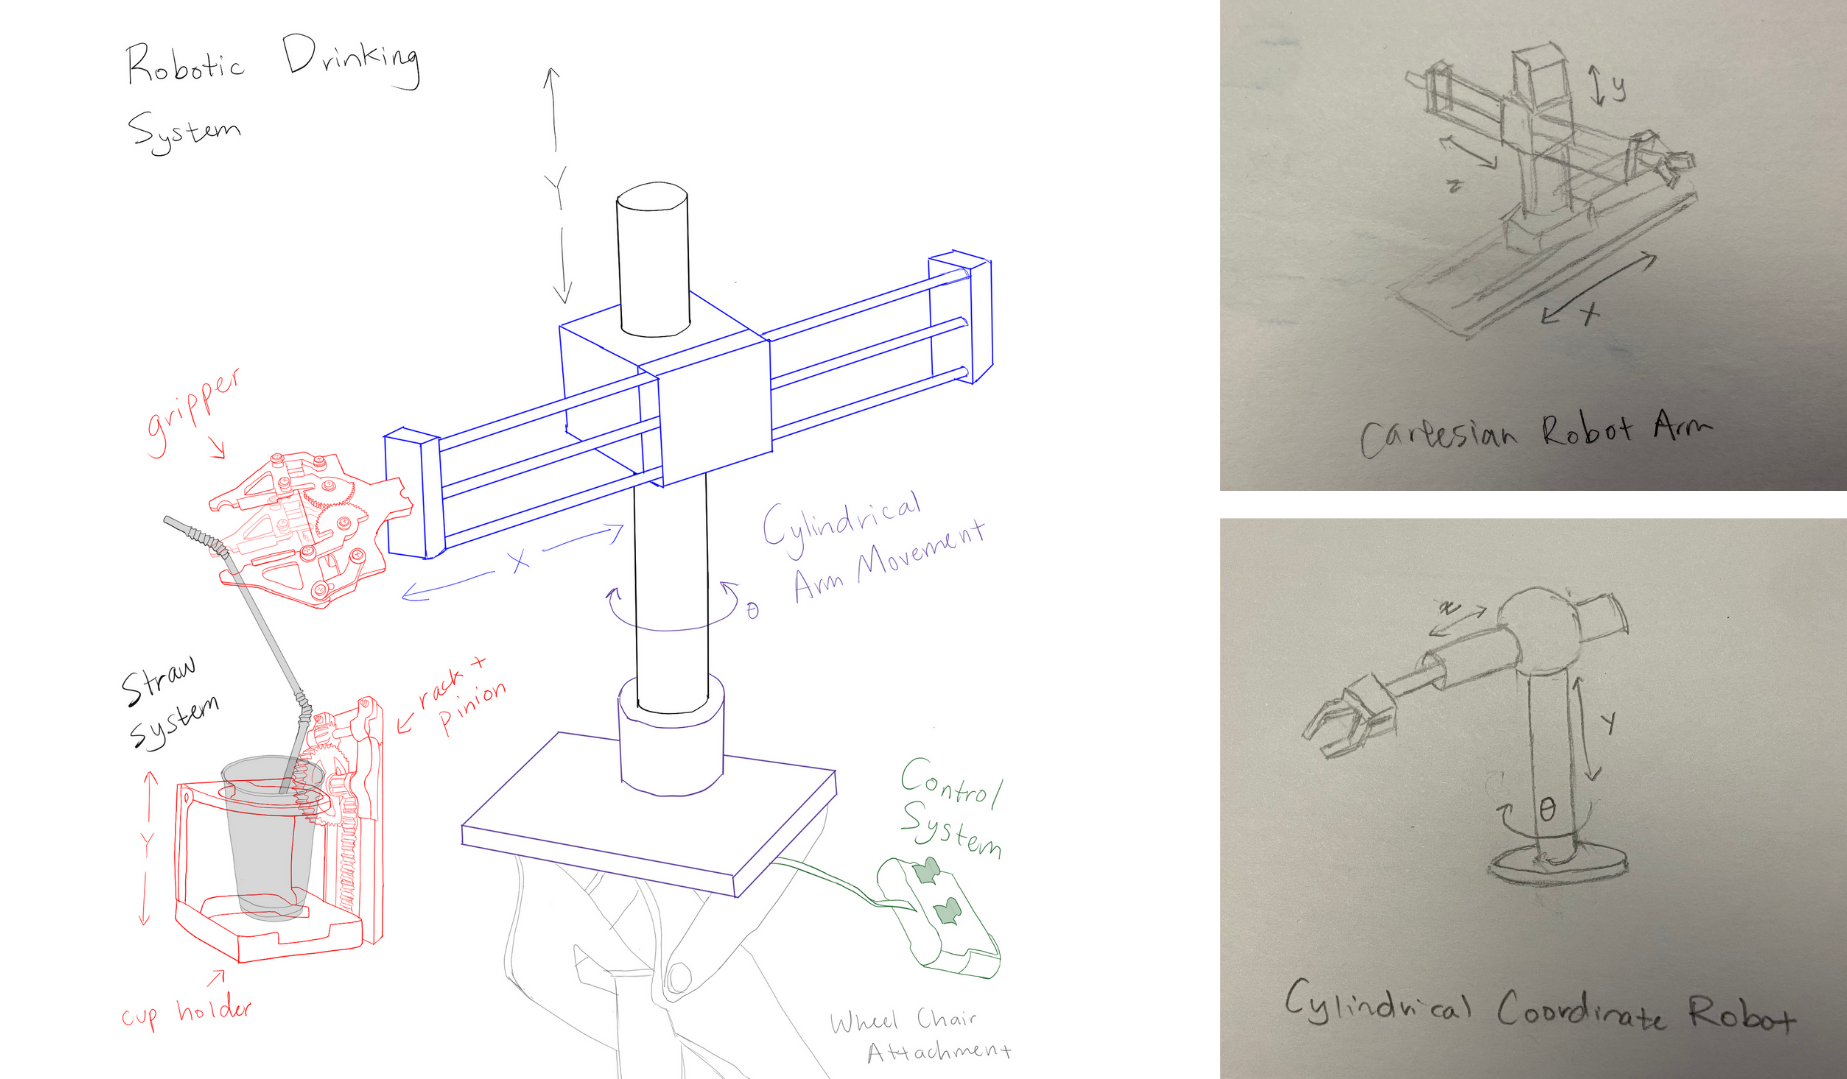 Robotic Drinking
System
Y
gripper
X
Cylindrical
Arm Movement
θ
Straw
system
rack +
pinion
Y
cup holder
Control
System
Wheel Chair
Attachment
y
z
X
Cartesian Robot Arm
x
Y
θ
Cylindrical Coordinate Robot